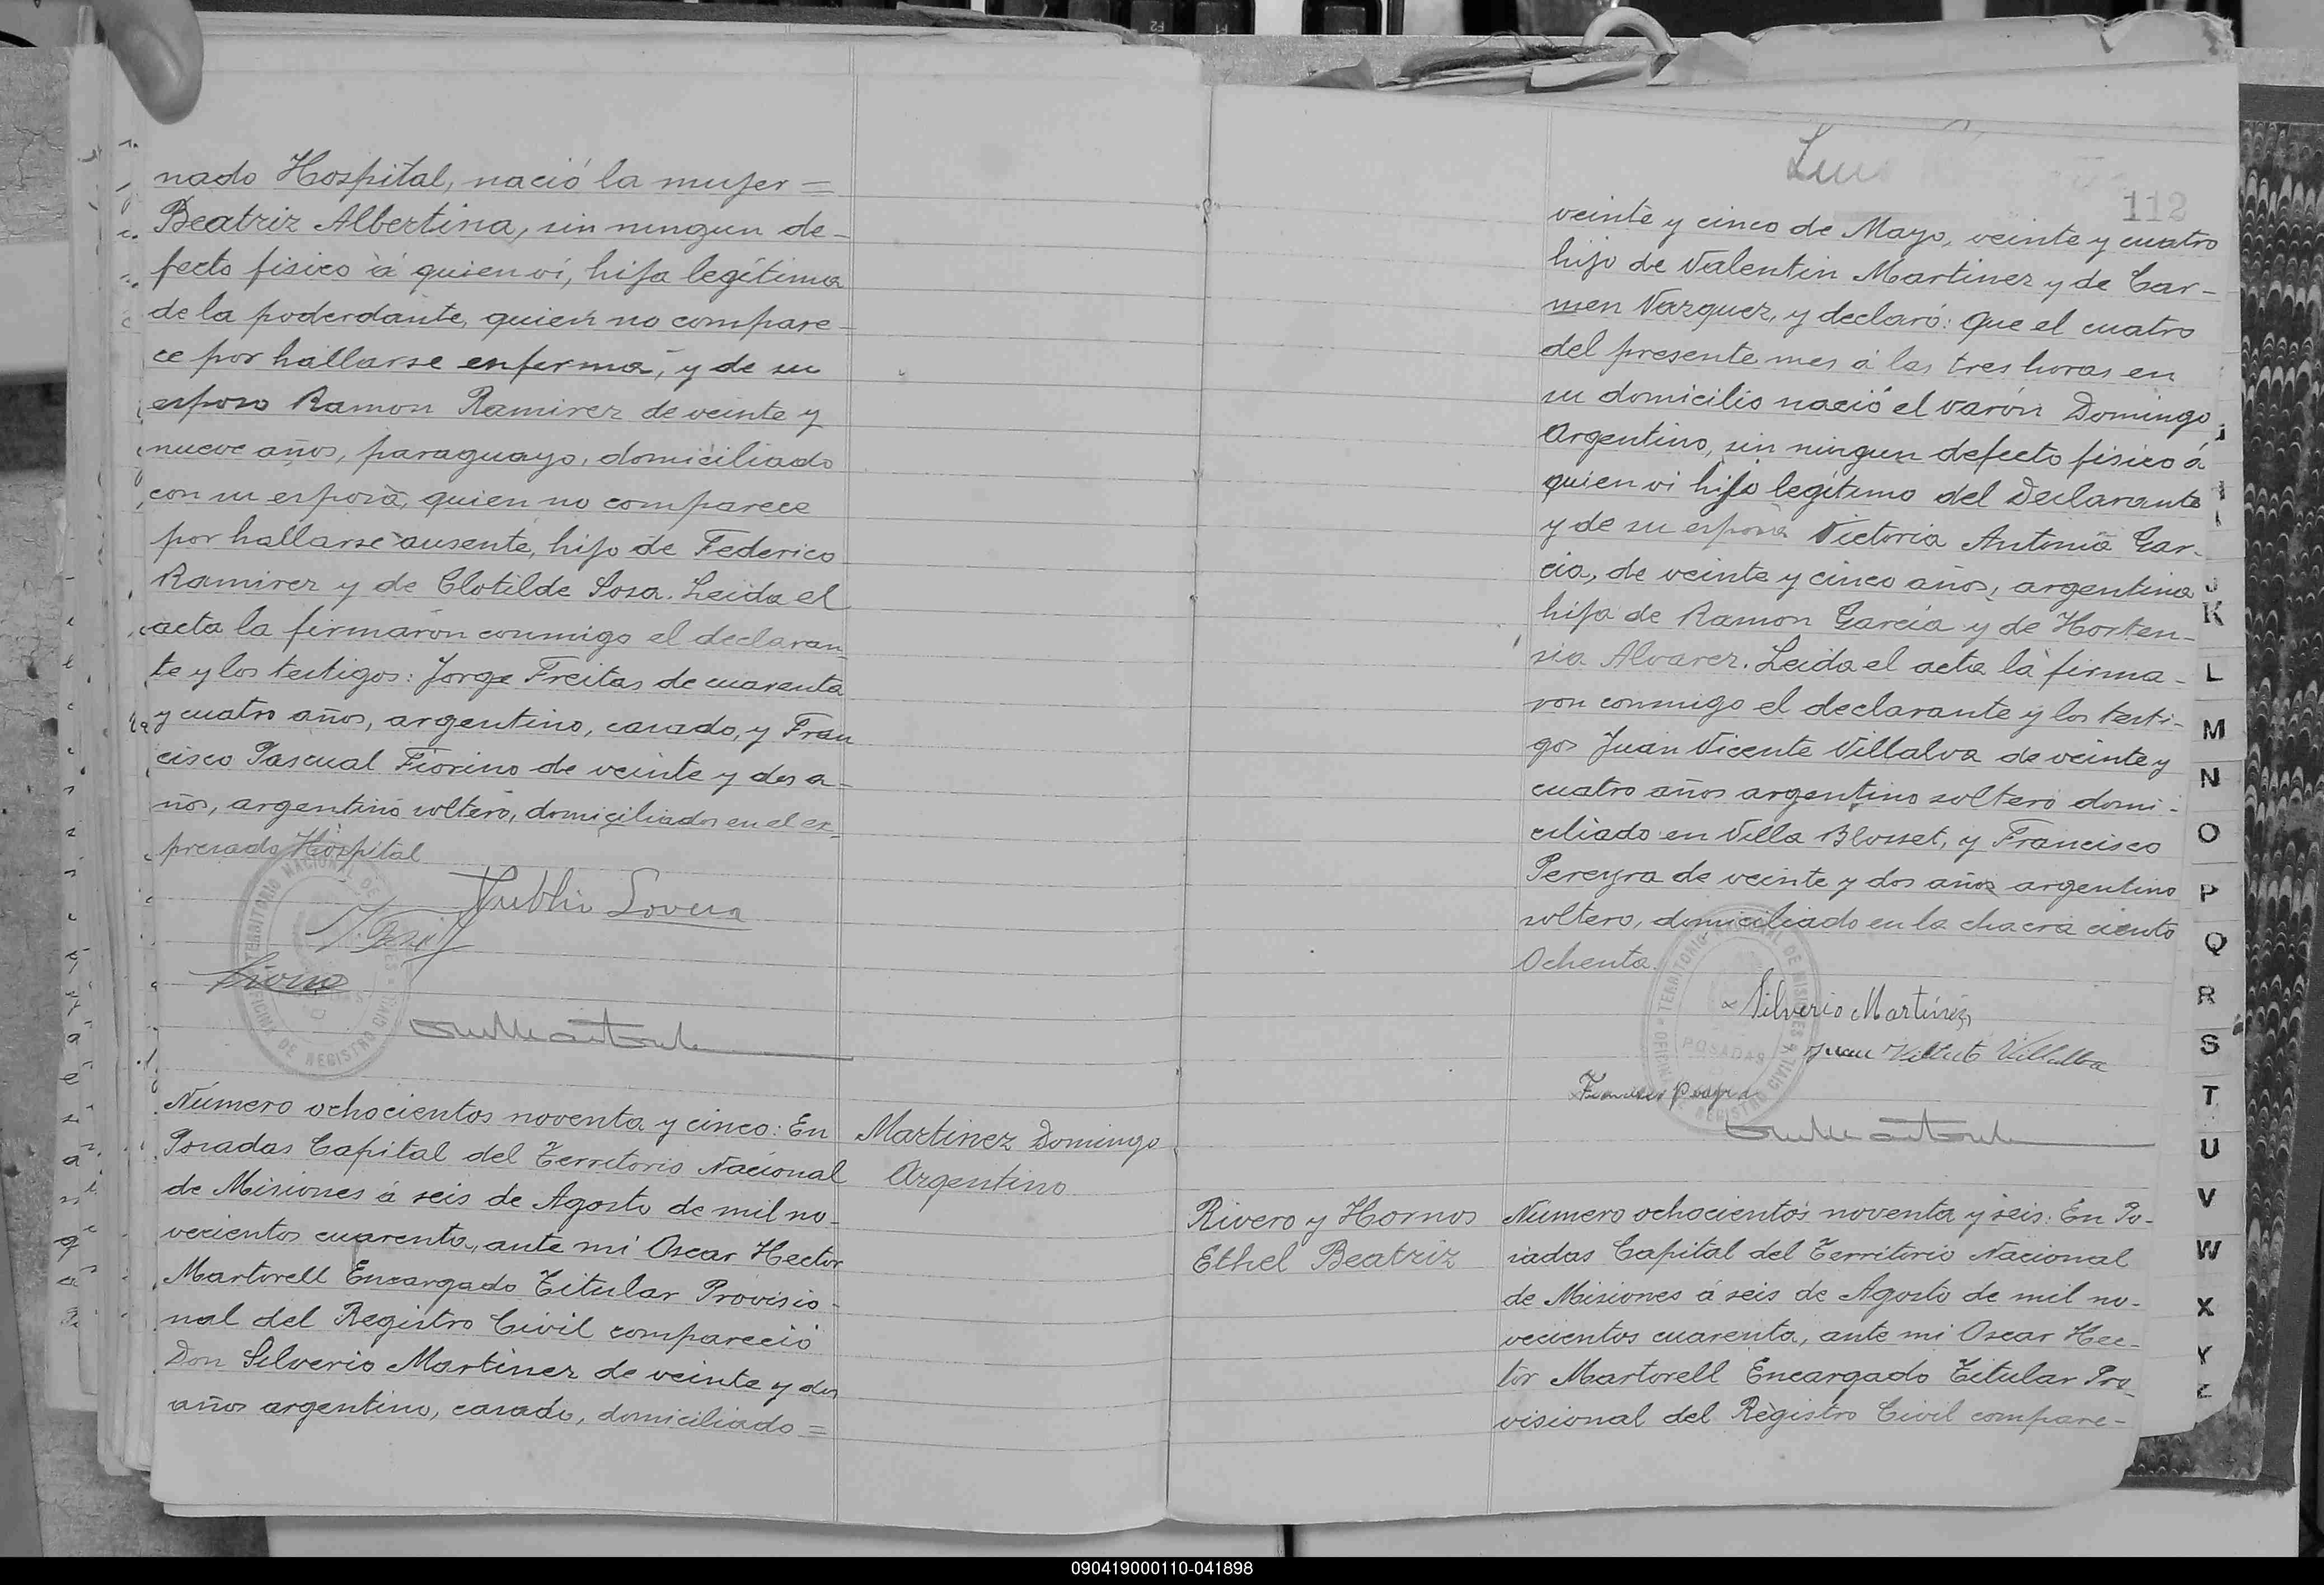 nado Hospital, nació la mujer =
Beatriz Albertina, sin ningun de-
fecto fisico á quien vi, hija legítima
de la poderdante, quien no compare-
ce por hallarse enferma, y de su
esposo Ramon Ramirez de veinte y
nueve años, paraguayo, domiciliado
con su esposa, quien no comparece
por hallarse ausente, hijo de Federico
Ramirez y de Clotilde Sosa. Leida el
acta la firmaron conmigo el declaran-
te y los testigos: Jorge Freitas de cuarenta
y cuatro años, argentino, casado, y Fran
cisco Pascual Fiorino de veinte y dos a-
ños, argentino soltero, domiciliados en el ex-
presado Hospital
TERRITORIO NACIONAL DE MISIONES
OFICINA DE REGISTRO CIVIL
Número ochocientos noventa y cinco: En
Posadas Capital del Territorio Nacional
de Misiones á seis de Agosto de mil no-
vecientos cuarenta, ante mi Oscar Hector
Martorell Encargado Titular Provisio-
nal del Registro Civil compareció
Don Silverio Martinez de veinte y dos
años argentino, casado, domiciliado =
Martinez Domingo
Argentino
112
veinte y cinco de Mayo, veinte y cuatro
hijo de Valentin Martinez y de Car-
men Vazquez, y declaró: Que el cuatro
del presente mes á las tres horas en
su domicilio nació el varón Domingo
Argentino, sin ningun defecto fisico á
quien vi hijo legítimo del Declarante
y de su esposa Victoria Antonia Gar-
cia, de veinte y cinco años, argentina
hija de Ramon García y de Horten-
sia Alvarez. Leida el acta la firma-
ron conmigo el declarante y los testi-
gos Juan Vicente Villalva de veinte y
cuatro años argentino soltero domi-
ciliado en Villa Blosset, y Francisco
Pereyra de veinte y dos años argentino
soltero, domiciliado en la chacra ciento
Ochenta.
TERRITORIO NACIONAL DE MISIONES
OFICINA DE REGISTRO CIVIL
POSADAS
Silverio Martinez
Juan Villalba
Rivero y Hornos
Ethel Beatriz
Número ochocientos noventa y seis: En Po-
sadas Capital del Territorio Nacional
de Misiones á seis de Agosto de mil no-
vecientos cuarenta, ante mi Oscar Hec-
tor Martorell Encargado Titular Pro-
visional del Registro Civil compare-
J
K
L
M
N
O
P
Q
R
S
T
U
V
W
X
Y
Z
090419000110-041898